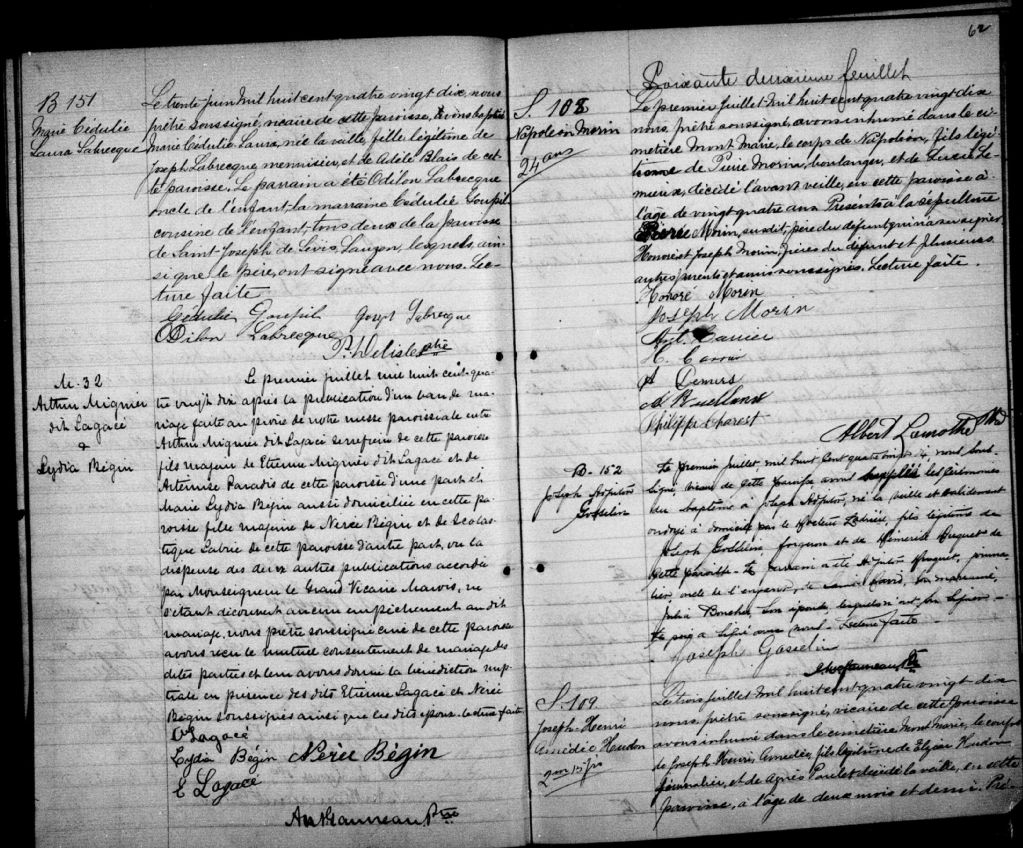 B 151
Marie Cédulie
Laura Labrecque
Le trente juin mil huit cent quatre vingt dix, nous
prêtre soussigné, vicaire de cette paroisse, avons baptisé
Marie Cédulie Laura, née la veille, fille légitime de
Joseph Labrecque, menuisier, et de Adèle Blais de cet-
te paroisse. Le parrain a été Odilon Labrecque
oncle de l'enfant, la marraine Cédulie Goupil
cousine de l'enfant, tous deux de la paroisse
de Saint Joseph de Lévis, Lauzon, lesquels, ain-
si que le père, ont signé avec nous. Lec-
ture faite
Cédulie Goupil Joseph Labrecque
Odilon Labrecque
P. Delisle ptre
M. 32
Arthur Mignier
dit Lagacé
&
Lydia Bégin
Le premier juillet mil huit cent qua-
tre vingt dix après la publication d'un ban de ma-
riage faite au prône de notre messe paroissiale entre
Arthur Mignier dit Lagacé de cette paroisse
fils majeur de Etienne Mignier dit Lagacé et de
Artémise Paradis de cette paroisse d'une part et
Marie Lydia Bégin aussi domiciliée en cette pa-
roisse fille majeure de Nérée Bégin et de Scolas-
tique Labrie de cette paroisse d'autre part, vu la
dispense des deux autres publications accordée
par Monseigneur le Grand Vicaire Marois, ne
s'étant découvert aucun empêchement au dit
mariage, nous prêtre soussigné curé de cette paroisse
avons reçu le mutuel consentement de mariage des
dites parties et leur avons donné la bénédiction nup-
tiale en présence des dits Etienne Lagacé et Nérée
Bégin soussignés ainsi que les dits époux. Lecture faite
Lagacé
Lydia Bégin Nérée Bégin
E Lagacé
Gauvreau Ptre
62
Soixante deuxième feuillet
S. 108
Napoléon Morin
24 ans
Le premier juillet mil huit cent quatre vingt dix
nous, prêtre soussigné, avons inhumé dans le ci-
metière Mont Marie, le corps de Napoléon, fils légi-
time de Pierre Morin, boulanger, et de Luce Le-
mieux, décédé l'avant veille, en cette paroisse à
l'âge de vingt quatre ans. Présents à la sépulture
Pierre Morin, susdit, père du défunt qui n'a su signer
Honoré et Joseph Morin, frères du défunt et plusieurs
autres parents et amis soussignés. Lecture faite.
Honoré Morin
Joseph Morin
Ant. Carrier
H. Carrier
A Demers
Philippe Charest
Albert Lamothe
B. 152
Joseph
Gosselin
Le premier juillet, mil huit cent quatre vingt nous sous-
signé, vicaire de cette paroisse avons suppléé les cérémonies
du baptême à Joseph né la veille et validement
ondoyé à domicile par le Docteur fils légitime de
Joseph Gosselin, forgeron et de Huguet de
cette paroisse. Le parrain a été Huguet,
oncle de l'enfant, la marraine,
Julie Boucher son épouse, lesquels n'ont su signer.
Le père a signé avec nous. Lecture faite.
Joseph Gosselin
Gauvreau Ptr
S. 109
Joseph Henri
Amédée Hudon
2 m 15 jrs
Le trois juillet mil huit cent quatre vingt dix
nous, prêtre soussigné, vicaire de cette paroisse
avons inhumé dans le cimetière Mont Marie, le corps
de Joseph Henri, Amédée, fils légitime de Elzéar Hudon
journalier, et de décédé la veille, en cette
paroisse, à l'âge de deux mois et demi. Pré-